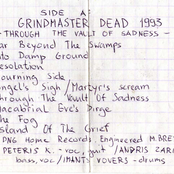 SIDE A
GRINDMASTER DEAD 1993
-THROUGH THE VAULT OF SADNESS-
ar Beyond The Swamps
nto Damp Ground
esolation
ourning Side
ngel's Sigh / Martyr's scream
hrough The Vault Of Sadness
acabrial Eve's Dirge
he Fog
sland Of The Grief
PNG Home Records Engineered M.BRE
PETERIS K. - voc, guit / ANDRIS ZAR
bass, voc / IMANTS VOVERS - drums